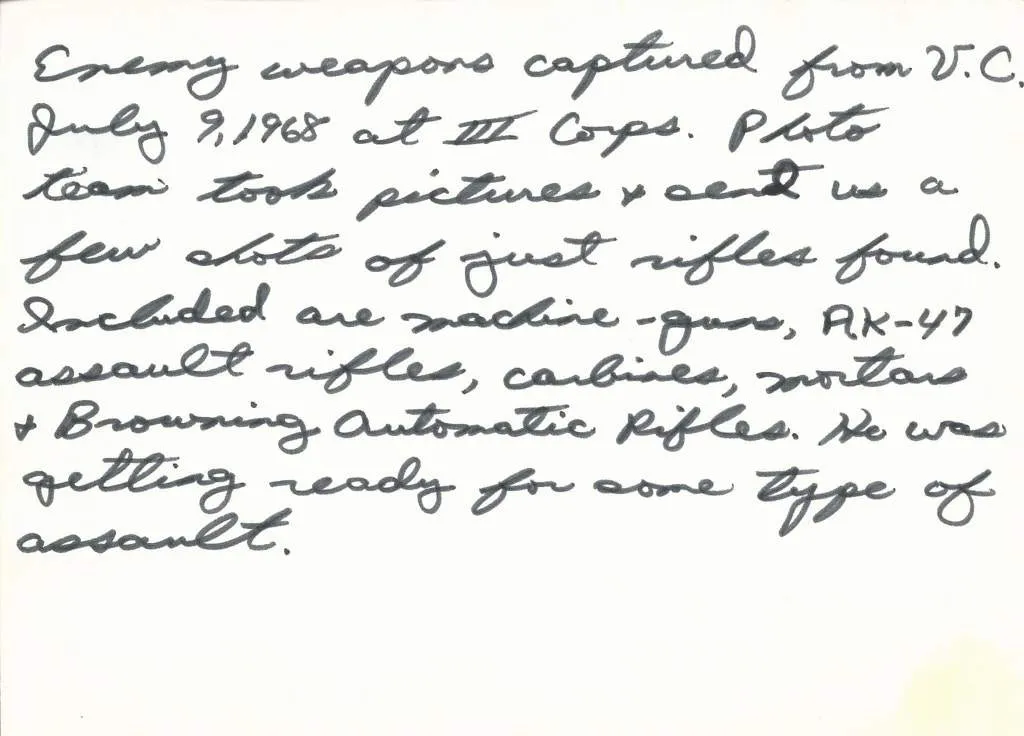 Enemy weapons captured from V.C.
July 9, 1968 at III Corps. Photo
team took pictures & sent us a
few shots of just rifles found.
Included are machine-guns, AK-47
assault rifles, carbines, mortars
& Browning Automatic Rifles. He was
getting ready for some type of
assault.